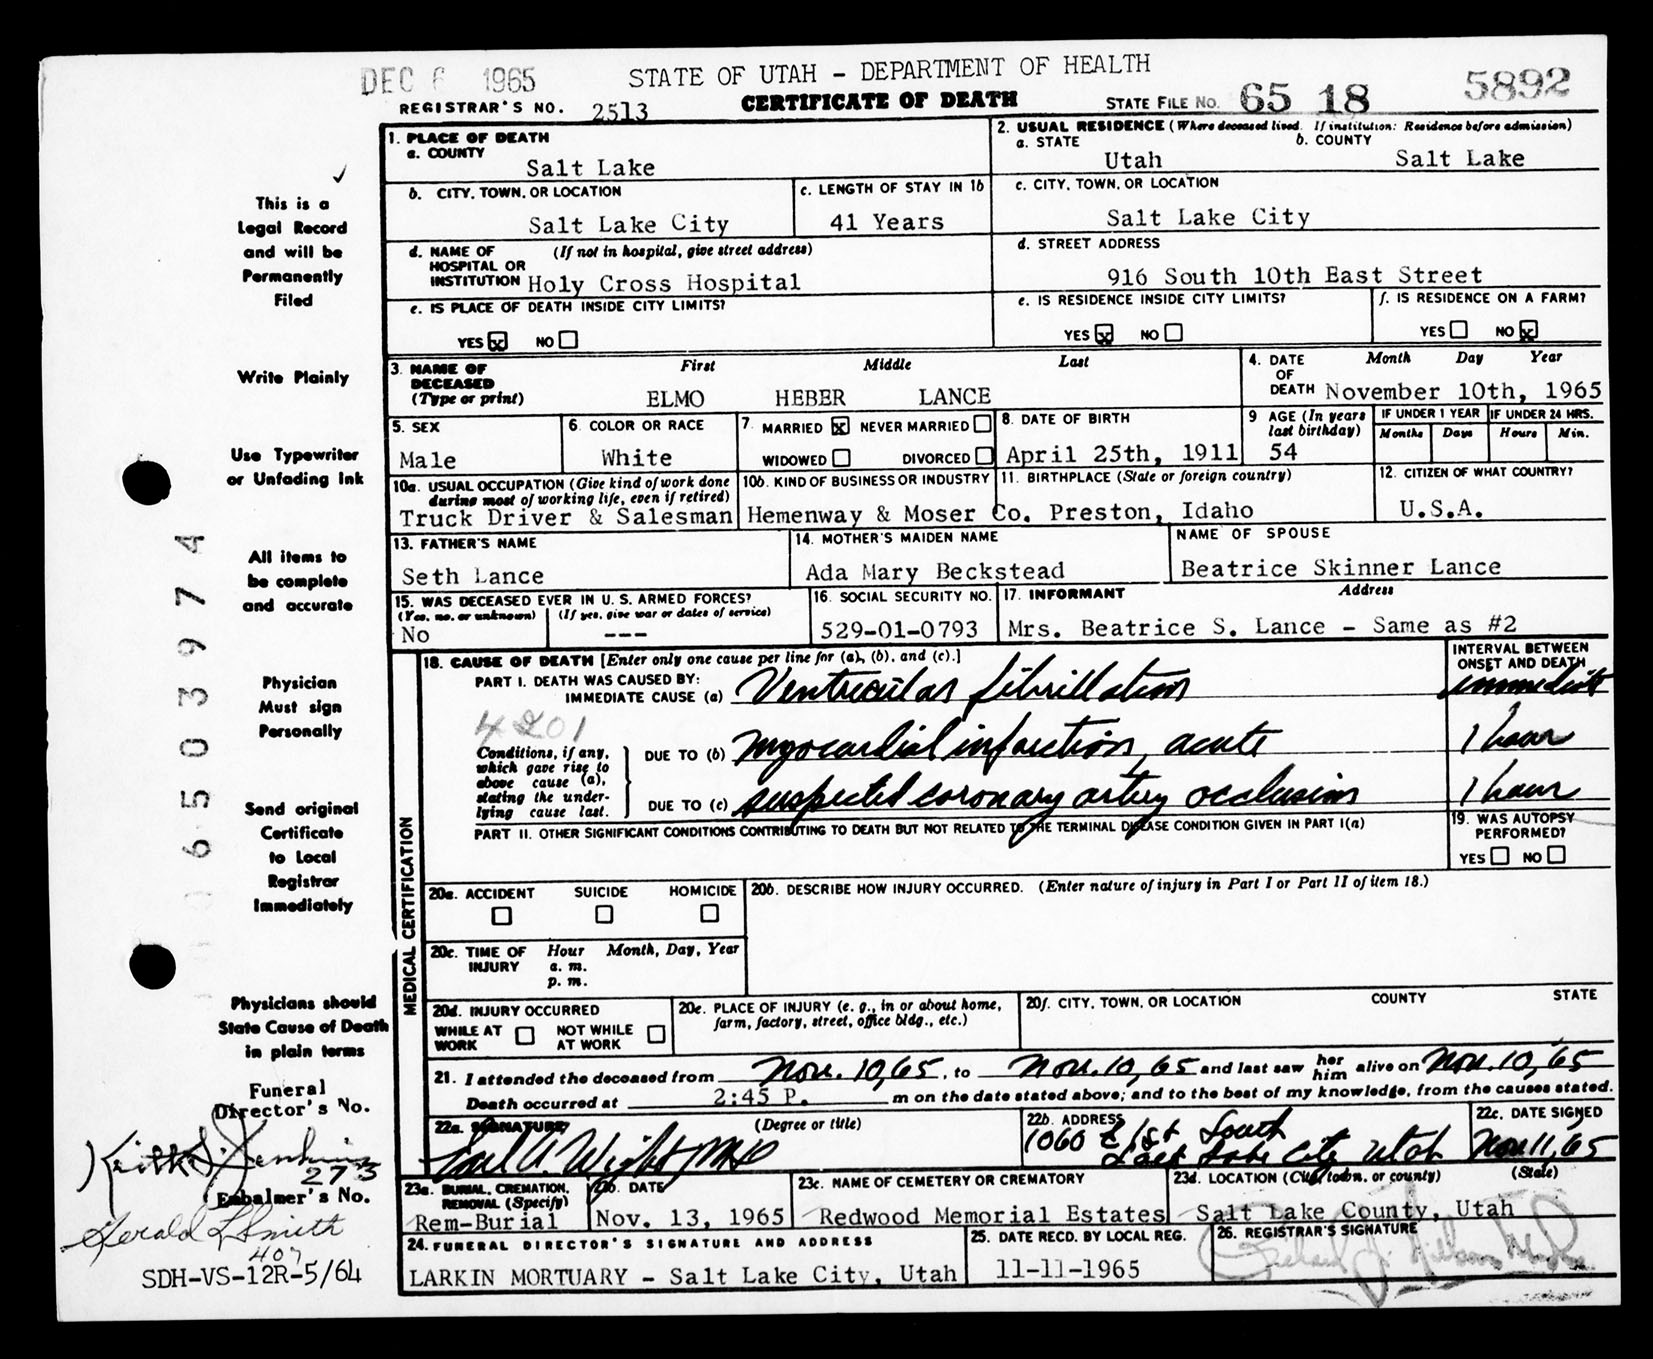 DEC 6 1965
STATE OF UTAH - DEPARTMENT OF HEALTH
5892
REGISTRAR'S NO. 2513
CERTIFICATE OF DEATH
STATE FILE NO. 65 18
1. PLACE OF DEATH
a. COUNTY
Salt Lake
2. USUAL RESIDENCE (Where deceased lived. If institution: Residence before admission)
a. STATE
Utah
b. COUNTY
Salt Lake
b. CITY, TOWN, OR LOCATION
Salt Lake City
c. LENGTH OF STAY IN 1b
41 Years
c. CITY, TOWN, OR LOCATION
Salt Lake City
d. NAME OF HOSPITAL OR INSTITUTION (If not in hospital, give street address)
Holy Cross Hospital
d. STREET ADDRESS
916 South 10th East Street
e. IS PLACE OF DEATH INSIDE CITY LIMITS?
YES x NO
e. IS RESIDENCE INSIDE CITY LIMITS?
YES x NO
f. IS RESIDENCE ON A FARM?
YES NO x
3. NAME OF DECEASED (Type or print)
First Middle Last
ELMO HEBER LANCE
4. DATE OF DEATH
Month Day Year
November 10th, 1965
5. SEX
Male
6. COLOR OR RACE
White
7. MARRIED x NEVER MARRIED
WIDOWED DIVORCED
8. DATE OF BIRTH
April 25th, 1911
9 AGE (In years last birthday)
54
IF UNDER 1 YEAR
Months Days
IF UNDER 24 HRS.
Hours Min.
10a. USUAL OCCUPATION (Give kind of work done during most of working life, even if retired)
Truck Driver & Salesman
10b. KIND OF BUSINESS OR INDUSTRY
Hemenway & Moser Co.
11. BIRTHPLACE (State or foreign country)
Preston, Idaho
12. CITIZEN OF WHAT COUNTRY?
U.S.A.
13. FATHER'S NAME
Seth Lance
14. MOTHER'S MAIDEN NAME
Ada Mary Beckstead
NAME OF SPOUSE
Beatrice Skinner Lance
15. WAS DECEASED EVER IN U. S. ARMED FORCES?
(Yes, no, or unknown) (If yes, give war or dates of service)
No ---
16. SOCIAL SECURITY NO.
529-01-0793
17. INFORMANT Address
Mrs. Beatrice S. Lance - Same as #2
MEDICAL CERTIFICATION
18. CAUSE OF DEATH [Enter only one cause per line for (a), (b), and (c).]
INTERVAL BETWEEN ONSET AND DEATH
PART I. DEATH WAS CAUSED BY:
IMMEDIATE CAUSE (a) Ventricular fibrillation immediate
4201
Conditions, if any, which gave rise to above cause (a), stating the underlying cause last.
DUE TO (b) myocardial infarction, acute 1 hour
DUE TO (c) suspected coronary artery occlusion 1 hour
PART II. OTHER SIGNIFICANT CONDITIONS CONTRIBUTING TO DEATH BUT NOT RELATED TO THE TERMINAL DISEASE CONDITION GIVEN IN PART I(a)
19. WAS AUTOPSY PERFORMED?
YES NO
20a. ACCIDENT SUICIDE HOMICIDE
20b. DESCRIBE HOW INJURY OCCURRED. (Enter nature of injury in Part I or Part II of item 18.)
20c. TIME OF INJURY
Hour Month, Day, Year
a. m.
p. m.
20d. INJURY OCCURRED
WHILE AT WORK NOT WHILE AT WORK
20e. PLACE OF INJURY (e. g., in or about home, farm, factory, street, office bldg., etc.)
20f. CITY, TOWN, OR LOCATION COUNTY STATE
21. I attended the deceased from Nov. 10, 65, to Nov. 10, 65 and last saw her him alive on Nov. 10, 65
Death occurred at 2:45 P. m on the date stated above; and to the best of my knowledge, from the causes stated.
22a. SIGNATURE (Degree or title)
Earl A. Wight MD
22b. ADDRESS
1060 E 1st South
Salt Lake City Utah
22c. DATE SIGNED
Nov. 11, 65
23a. BURIAL, CREMATION, REMOVAL (Specify)
Rem-Burial
23b. DATE
Nov. 13, 1965
23c. NAME OF CEMETERY OR CREMATORY
Redwood Memorial Estates
23d. LOCATION (City, town, or county) (State)
Salt Lake County, Utah
24. FUNERAL DIRECTOR'S SIGNATURE AND ADDRESS
LARKIN MORTUARY - Salt Lake City, Utah
25. DATE RECD. BY LOCAL REG.
11-11-1965
26. REGISTRAR'S SIGNATURE
This is a
Legal Record
and will be
Permanently
Filed
Write Plainly
Use Typewriter
or Unfading Ink
All items to
be complete
and accurate
Physician
Must sign
Personally
Send original
Certificate
to Local
Registrar
Immediately
Physicians should
State Cause of Death
in plain terms
Funeral
Director's No.
Keith S. Jenkins
273
Embalmer's No.
Gerald L Smith
407
SDH-VS-12R-5/64
65039 74